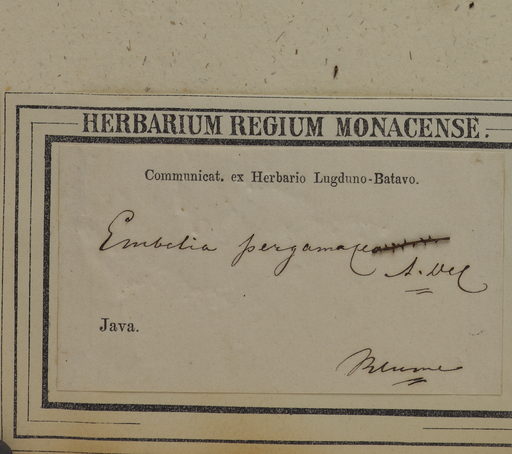 HERBARIUM REGIUM MONACENSE.
Communicat. ex Herbario Lugduno-Batavo.
Embelia pergamacea
A. DC
Java.
Blume